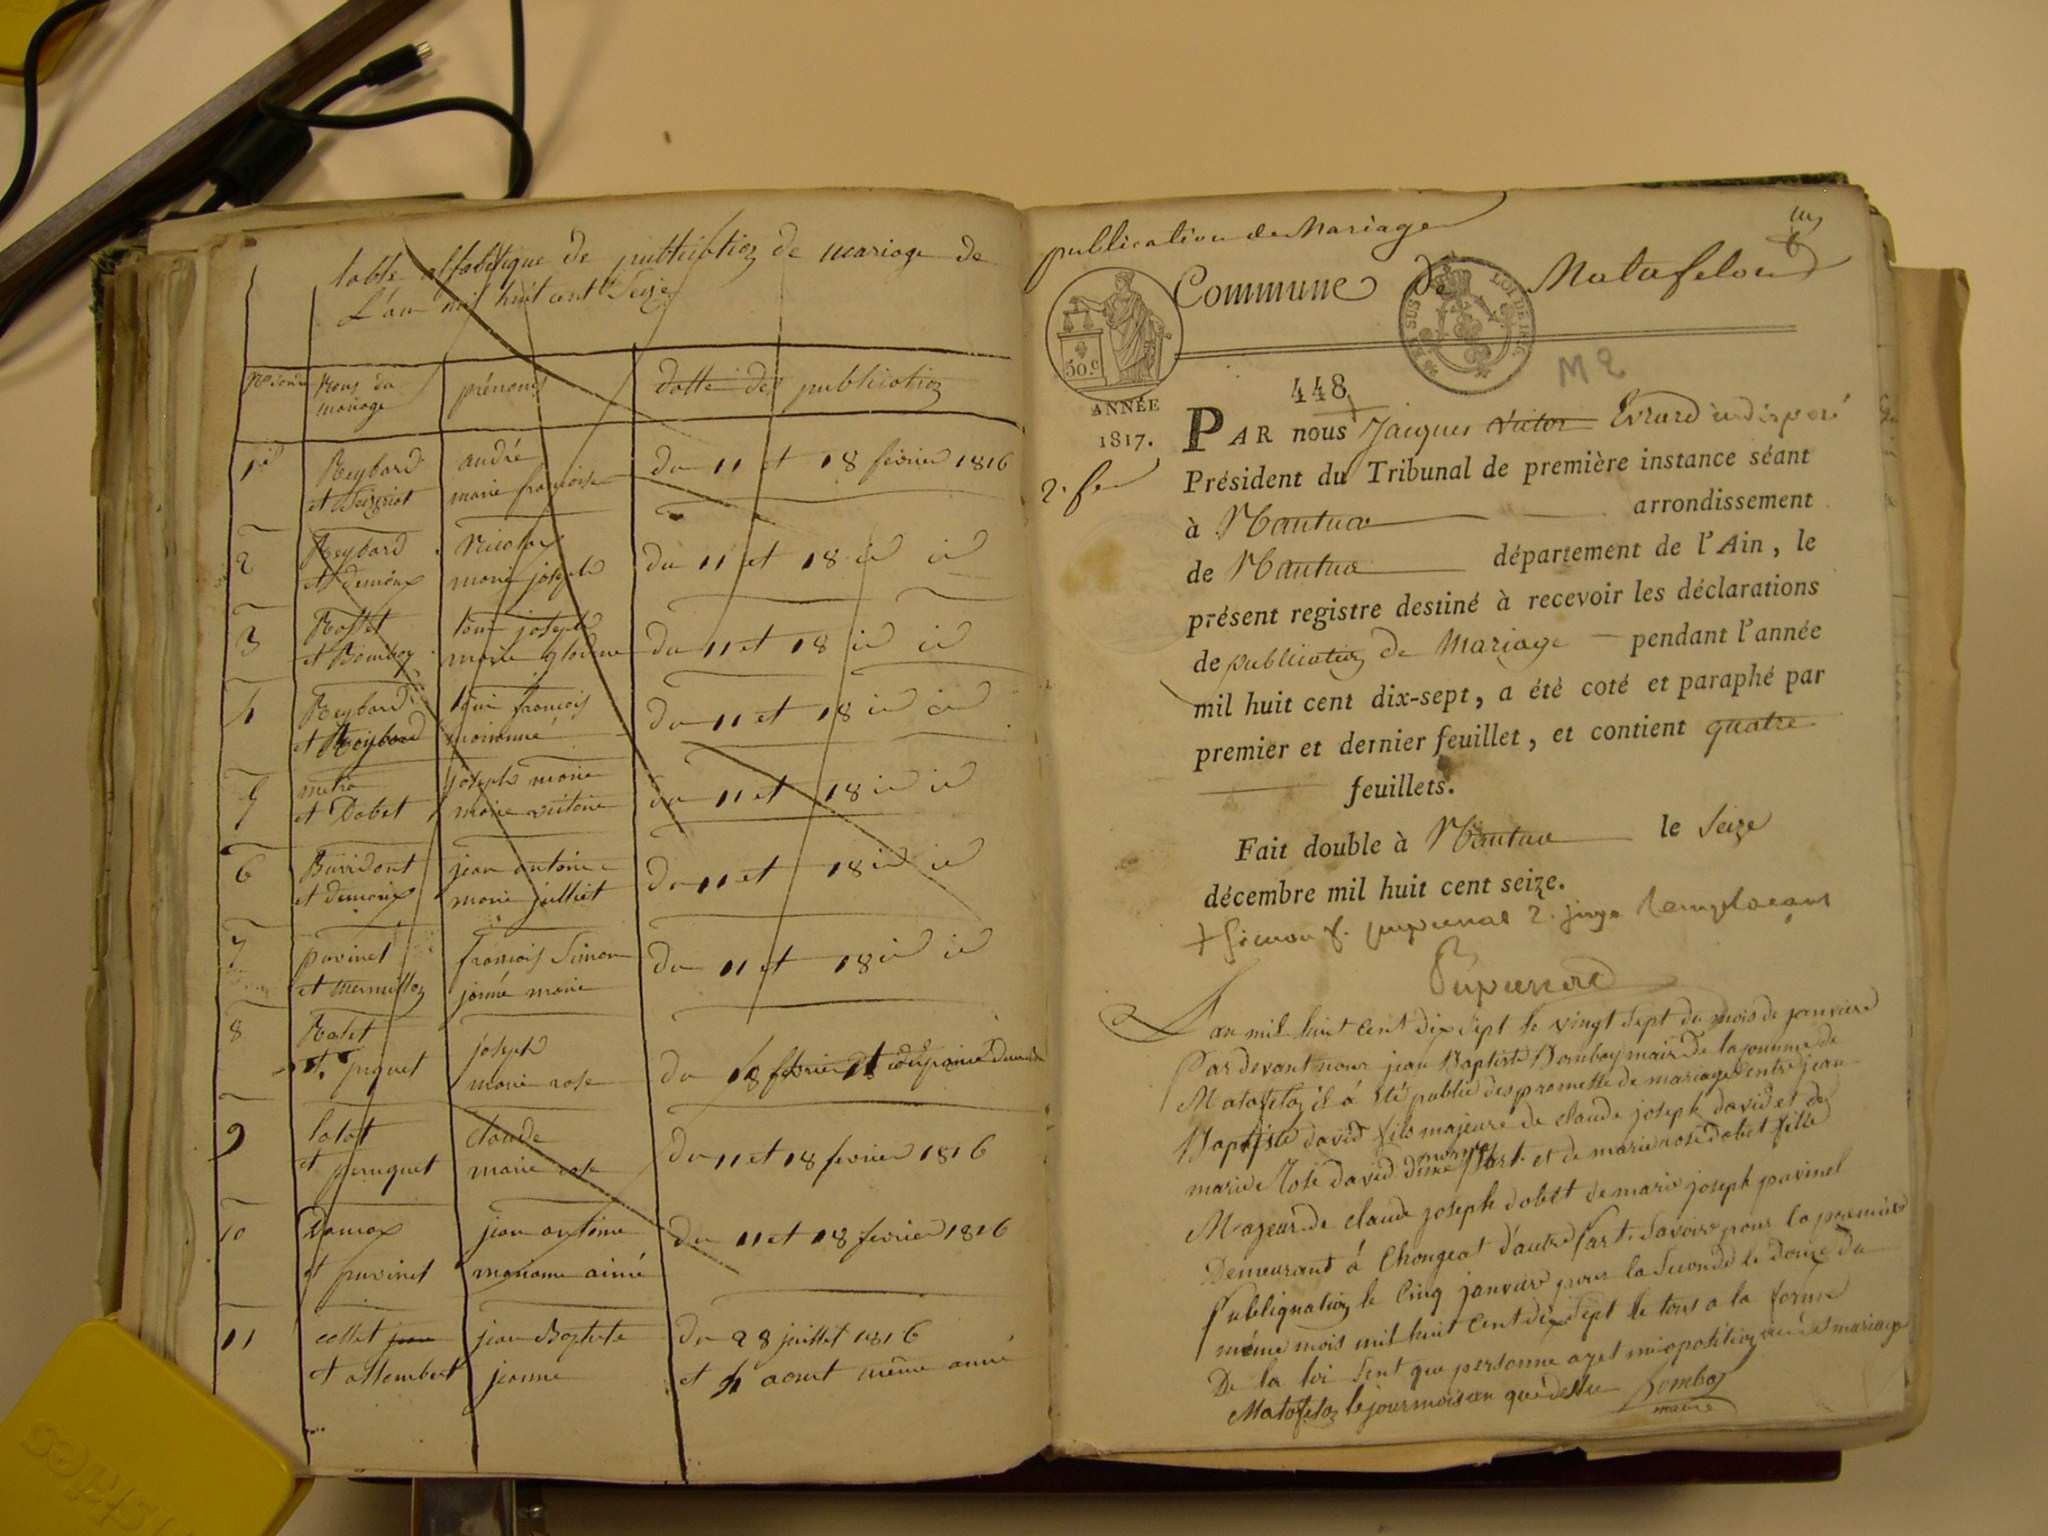 table alfabetique de publication de mariage de
L'an mil huit cent Seize
Noms du mariage
prénoms
datte des publication
1er Reybard andré du 11 et 18 février 1816
et marie françoise
2 Reybard Nicolas du 11 et 18 id id
et demoux marie joseph
3 Rosset louis joseph du 11 et 18 id id
et Bomboy marie glodine
4 Reybard louis françois du 11 et 18 id id
et Reybard
5 joseph marie du 11 et 18 id id
et Dobet marie victoire
6 Burdont jean antoine du 11 et 18 id id
et demoux marie julliet
7 pavinet françois Simon du 11 et 18 id id
et mermillon marie
8 Ratet joseph
et piquet marie rose du 18 fevrier
9 Latot claude du 11 et 18 fevrier 1816
et perruquet marie rose
10 Damox jean antoine du 11 et 18 fevrier 1816
et pavinet aimé
11 collet jean Baptiste du 28 juillet 1816
et allombert jeanne et 4 aout même anné
publication de Mariage
Commune de Matafelond
SUS
LOI DE
50.c
M 2
448
ANNÉE
1817.
2. f.
PAR nous Jacques victor Evrard
Président du Tribunal de première instance séant
à Nantua arrondissement
de Nantua département de l'Ain, le
présent registre destiné à recevoir les déclarations
de publication de Mariage pendant l'année
mil huit cent dix-sept, a été coté et paraphé par
premier et dernier feuillet, et contient quatre
feuillets.
Fait double à Nantua le Seize
décembre mil huit cent seize.
2. juge Remplaçant
L'an mil huit cent dix sept le vingt sept du mois de janvier
Par devant nous jean Baptiste Bomboy maire De la commune de
Matafelon il á été publié des promesse de mariage entre jean
Baptiste david fils majeure de claude joseph david et de
marie Rose david d'une part et de marie rose dobet fille
Majeur de claude joseph dobet de marie joseph pavinet
Demeurant á Chongeat d'autre part. Savoir pour la première
Publignation le Cinq janvier pour la Seconde le Douze du
même mois mil huit Cent dix Sept le tous a la forme
De la loi Sent que personne ayet mi opotition au dit mariage
Matafelon le jour mois en que dessu Bomboy
maire